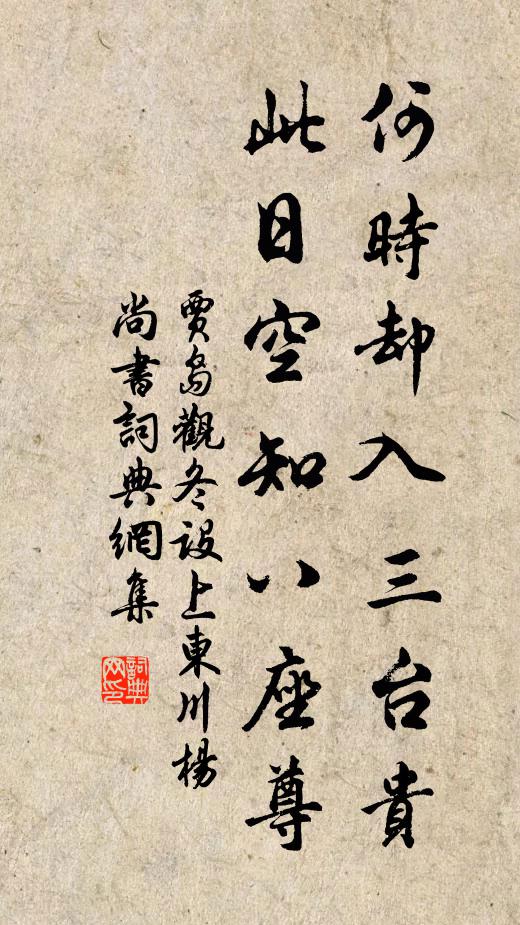 何時却入三台貴
此日空知八座尊
賈島觀冬設上東川楊
尚書詞典網集
詞典
网印